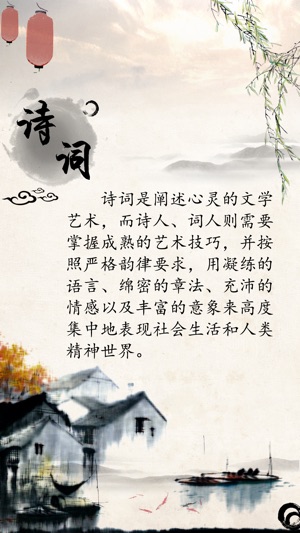 诗词
诗词是阐述心灵的文学
艺术，而诗人、词人则需要
掌握成熟的艺术技巧，并按
照严格韵律要求，用凝练的
语言、绵密的章法、充沛的
情感以及丰富的意象来高度
集中地表现社会生活和人类
精神世界。